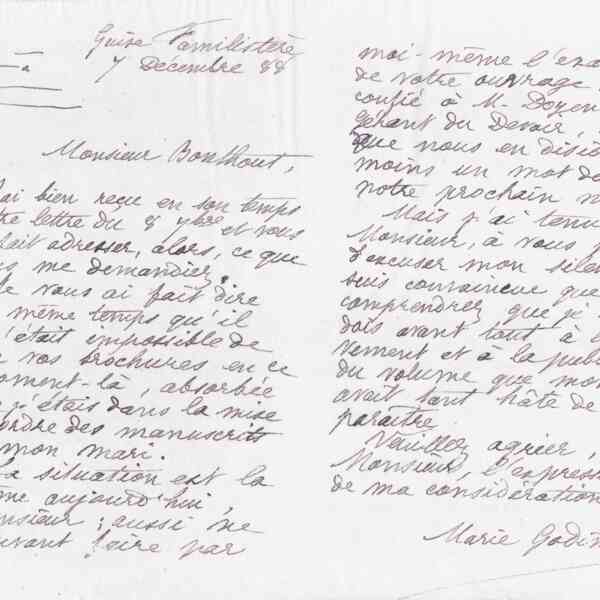 Guise Familistère
7 Décembre 88
Monsieur Bonthout,
ai bien reçu en son temps
tre lettre du 8 9bre et vous
fait adresser, alors, ce que
me demandiez.
Je vous ai fait dire
même temps qu'il
était impossible de
vos brochures en ce
moment-là, absorbée
j'étais dans la mise
ordre des manuscrits
mon mari.
La situation est la
me aujourd'hui,
nsieur ; aussi ne
uvant faire par
moi-même l'exa
de votre ouvrage
confié à M. Doyen
gérant du Devoir,
que nous en disio
moins un mot da
notre prochain n
Mais j'ai tenu
Monsieur, à vous
d'excuser mon silen
suis convaincue que
comprendrez que je
dois avant tout à l
vement et à la publi
du volume que mon
avait tant hâte de
paraître.
Veuillez agréer,
Monsieur, l'express
de ma considération
Marie Godin